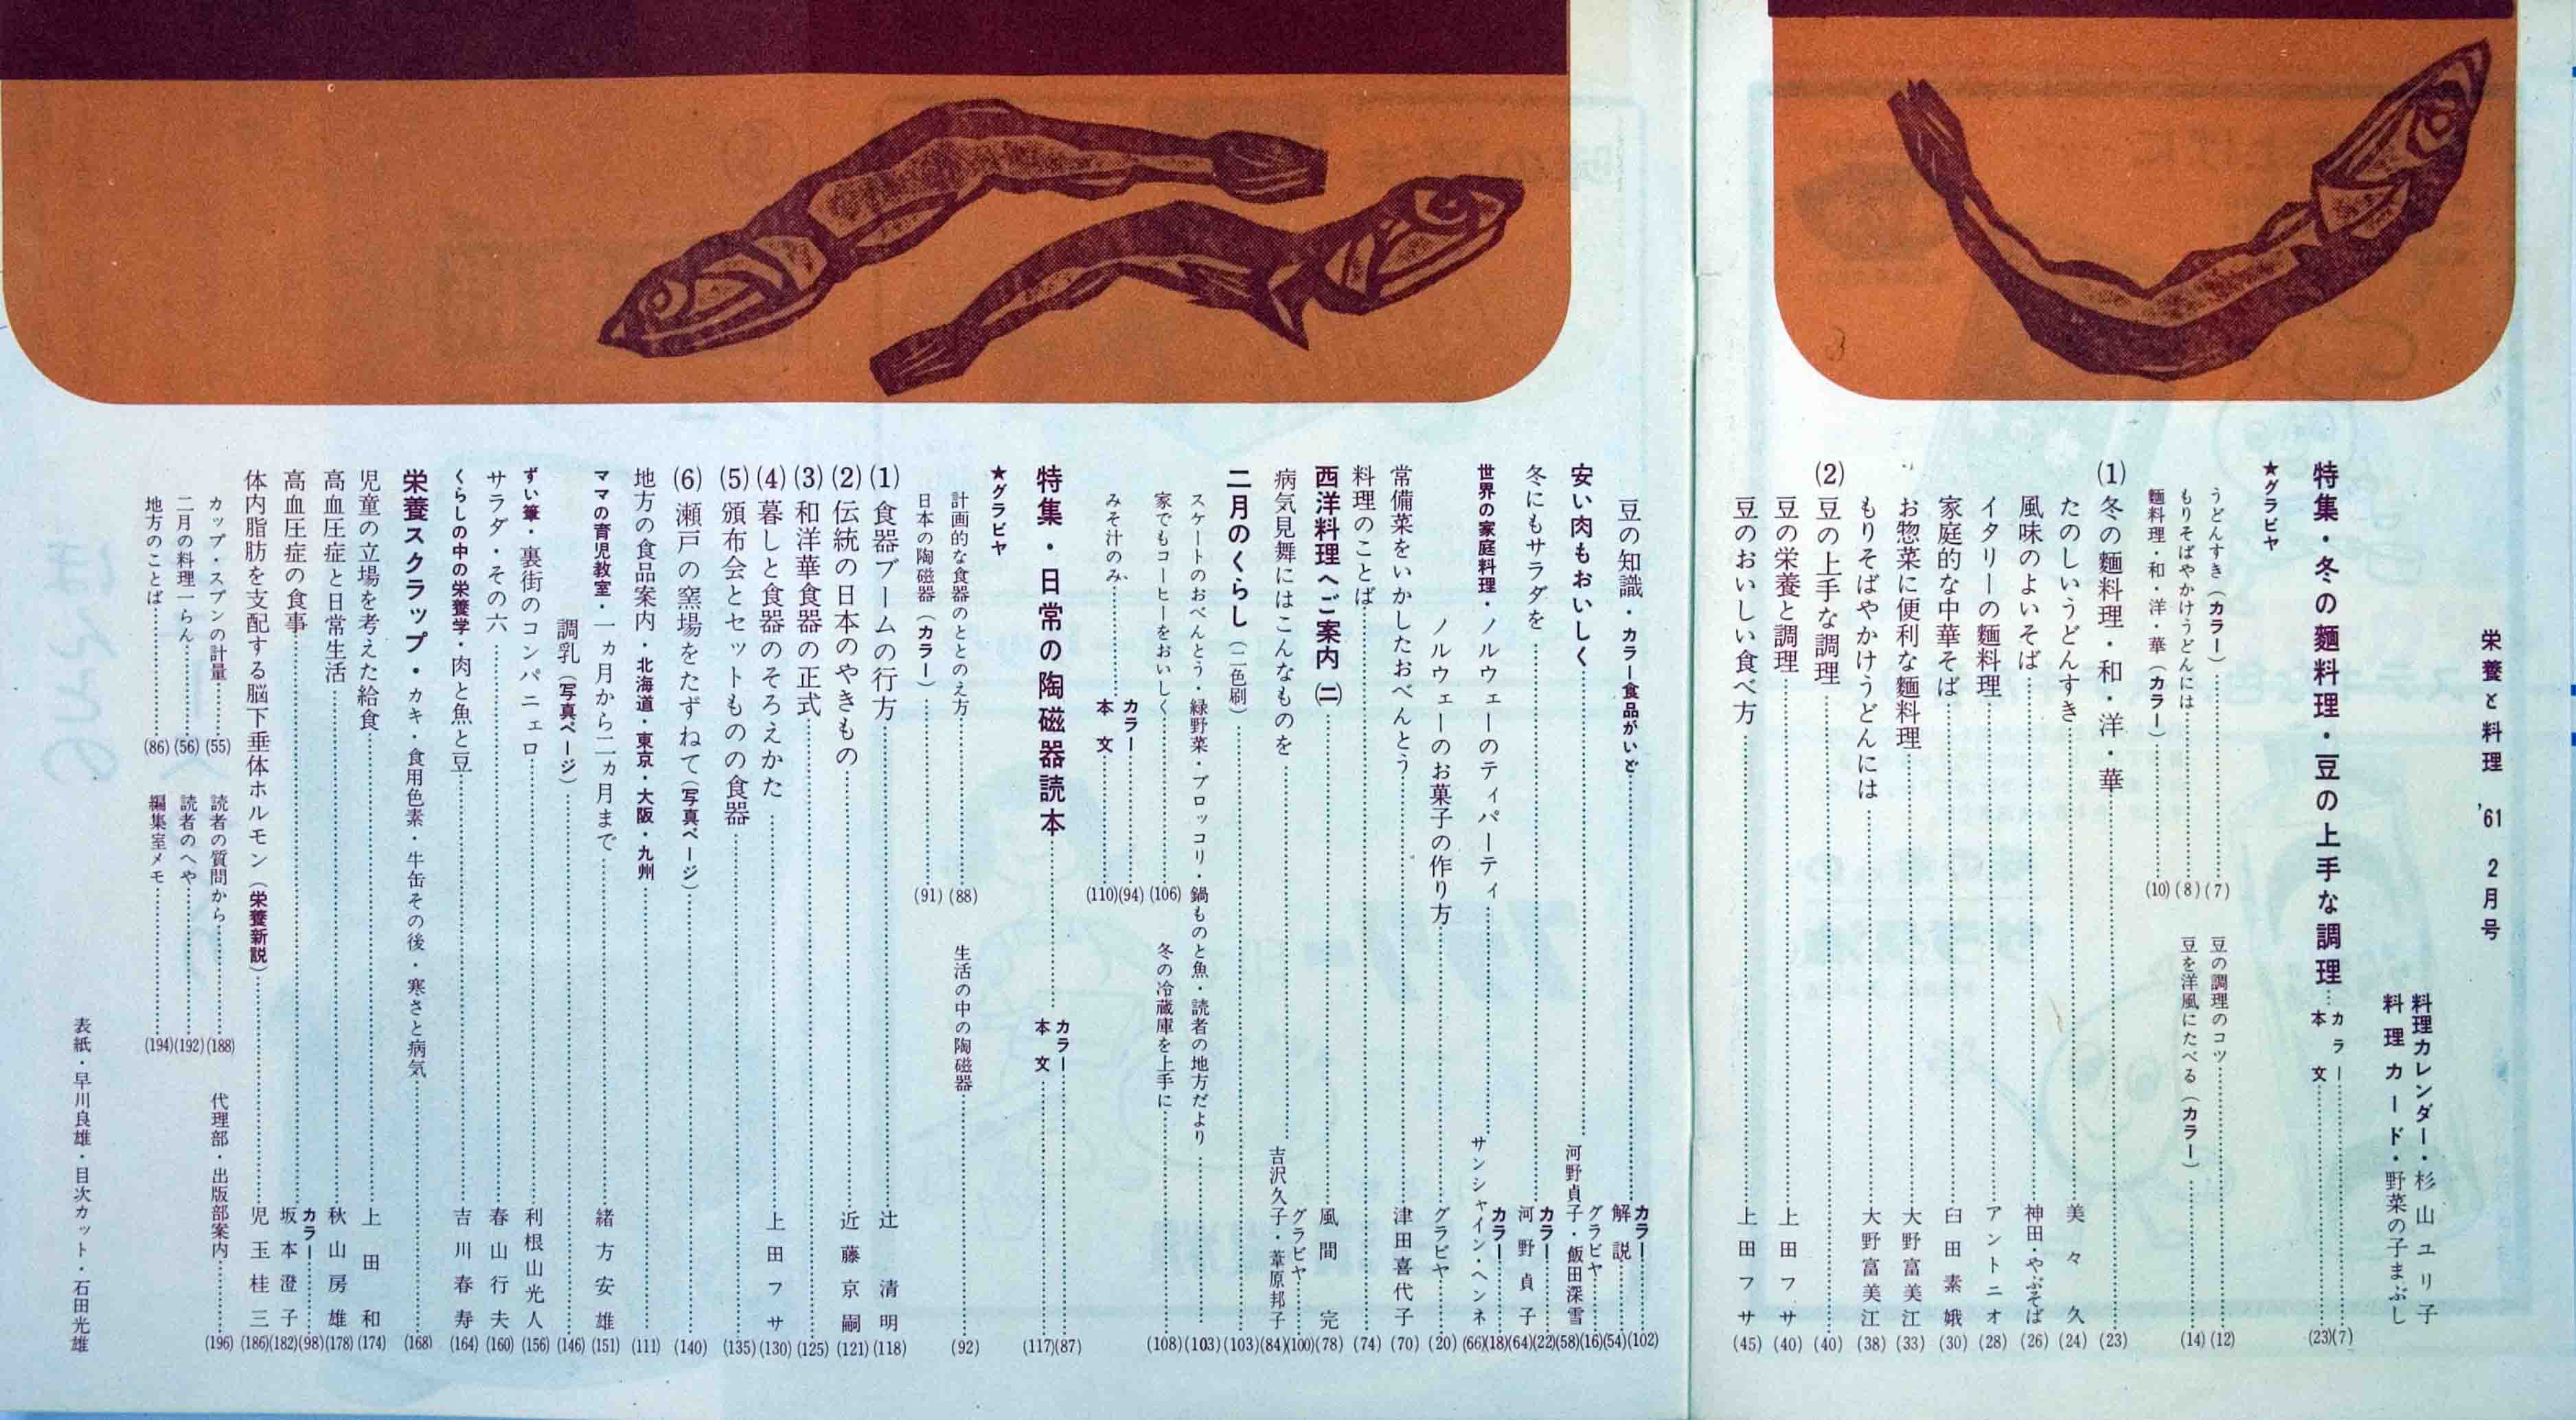 栄養と料理 '61 2月号
料理カレンダー・杉山ユリ子
料理カード・野菜の子まぶし
特集・冬の麵料理・豆の上手な調理…カラー……(7)
本文……(23)
★グラビヤ
うどんすき(カラー)……(7)
もりそばやかけうどんには……(8)
麵料理・和・洋・華(カラー)……(10)
豆の調理のコツ……(12)
豆を洋風にたべる(カラー)……(14)
(1)冬の麵料理・和・洋・華……(23)
たのしいうどんすき……美々久(24)
風味のよいそば……神田・やぶそば(26)
イタリーの麵料理……アントニオ(28)
家庭的な中華そば……臼田素娥(30)
お惣菜に便利な麵料理……大野富美江(33)
もりそばやかけうどんには……大野富美江(38)
(2)豆の上手な調理……(40)
豆の栄養と調理……上田フサ(40)
豆のおいしい食べ方……上田フサ(45)
豆の知識・カラー食品がいど……カラー……(102)
解説……(54)
安い肉もおいしく……グラビヤ……(16)
河野貞子・飯田深雪(58)
冬にもサラダを……カラー……(22)
河野貞子(64)
世界の家庭料理・ノルウェーのティパーティ……カラー……(18)
サンシャイン・ヘンネ(66)
ノルウェーのお菓子の作り方……グラビヤ……(20)
常備菜をいかしたおべんとう……津田喜代子(70)
料理のことば……(74)
西洋料理へご案内(二)……風間完(78)
病気見舞にはこんなものを……グラビヤ……(100)
吉沢久子・葦原邦子(84)
二月のくらし(二色刷)……(103)
スケートのおべんとう・緑野菜・ブロッコリ・鍋ものと魚・読者の地方だより……(103)
家でもコーヒーをおいしく……(106)
冬の冷蔵庫を上手に……(108)
みそ汁のみ……カラー……(94)
本文……(110)
特集・日常の陶磁器読本……カラー……(87)
本文……(117)
★グラビヤ
計画的な食器のととのえ方……(88)
生活の中の陶磁器……(92)
日本の陶磁器(カラー)……(91)
(1)食器ブームの行方……辻清明(118)
(2)伝統の日本のやきもの……近藤京嗣(121)
(3)和洋華食器の正式……(125)
(4)暮しと食器のそろえかた……上田フサ(130)
(5)頒布会とセットものの食器……(135)
(6)瀬戸の窯場をたずねて(写真ページ)……(140)
地方の食品案内・北海道・東京・大阪・九州……(111)
ママの育児教室・一ヵ月から二ヵ月まで……緒方安雄(151)
調乳(写真ページ)……(146)
ずい筆・裏街のコンパニェロ……利根山光人(156)
サラダ・その六……春山行夫(160)
くらしの中の栄養学・肉と魚と豆……吉川春寿(164)
栄養スクラップ・カキ・食用色素・牛缶その後・寒さと病気……(168)
児童の立場を考えた給食……上田和(174)
高血圧症と日常生活……秋山房雄(178)
高血圧症の食事……カラー……(98)
坂本澄子(182)
体内脂肪を支配する脳下垂体ホルモン(栄養新説)……児玉桂三(186)
カップ・スプンの計量……(55)
二月の料理一らん……(56)
地方のことば……(86)
読者の質問から……(188)
読者のへや……(192)
編集室メモ……(194)
代理部・出版部案内……(196)
表紙・早川良雄・目次カット・石田光雄